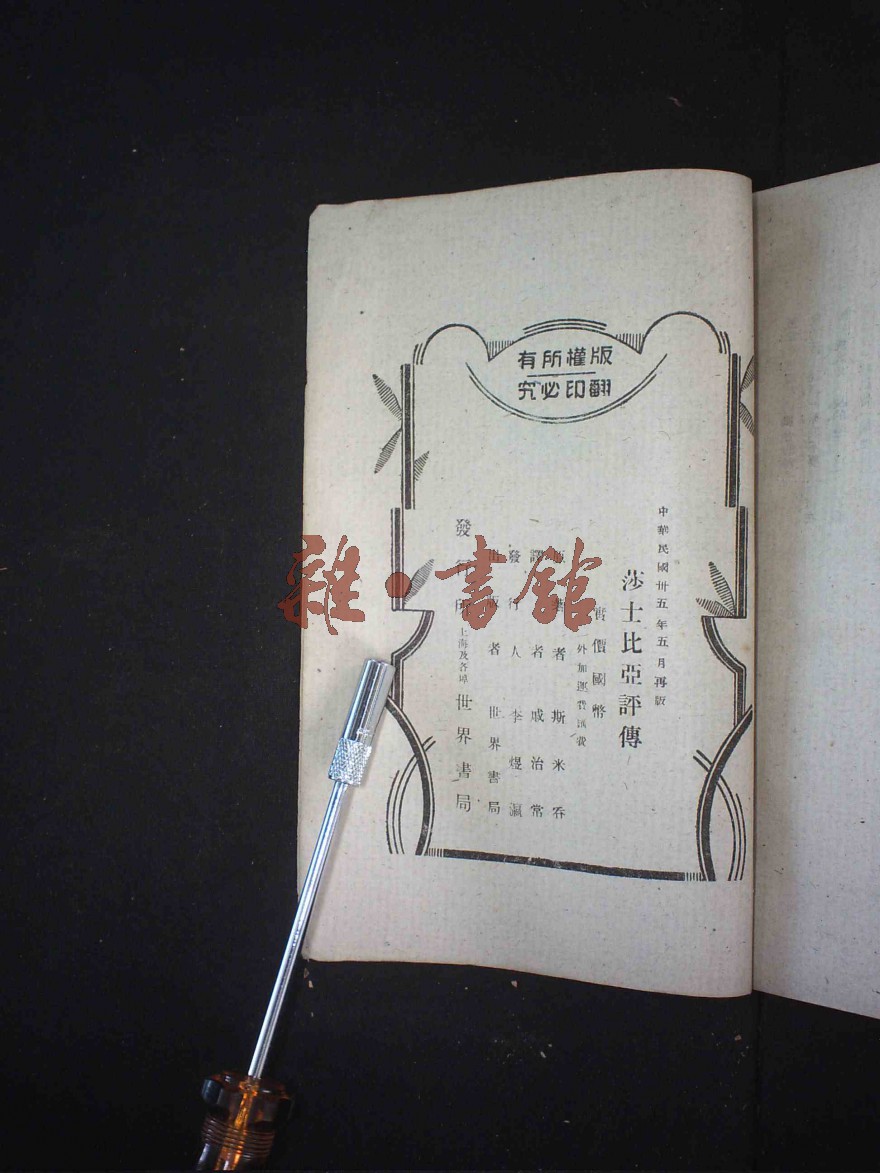 版權所有
翻印必究
中華民國卅五年五月再版
莎士比亞評傳
實價國幣
外加運費滙費
原著者 斯米吞
譯者 戚治常
發行人 李煜瀛
出版者 世界書局
發行所 上海及各埠 世界書局
雜·書館